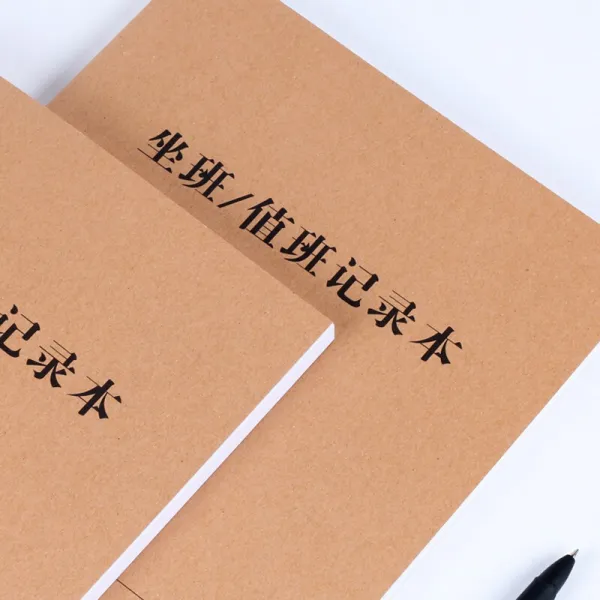 坐班/值班记录本
记录本